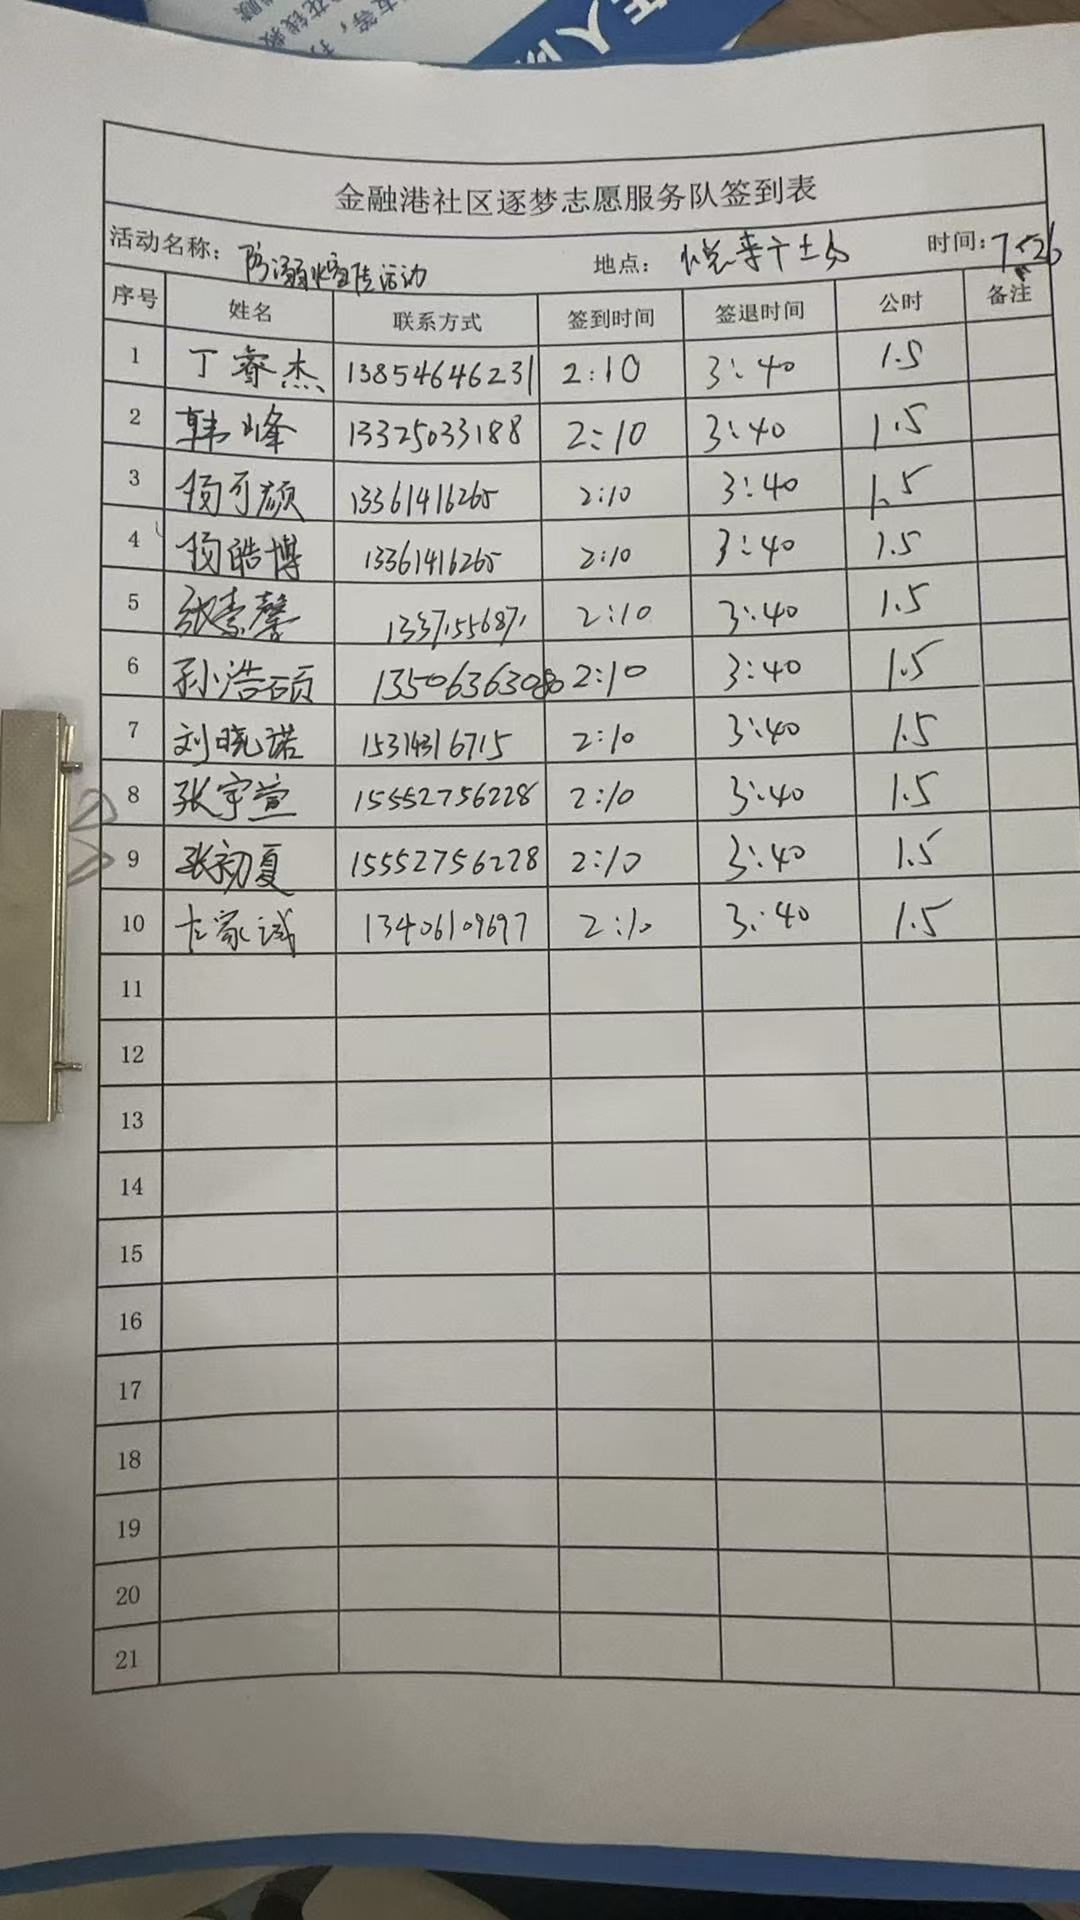 金融港社区逐梦志愿服务队签到表
活动名称: 防溺水宣传活动 地点: 悦来 时间: 7.26
序号 姓名 联系方式 签到时间 签退时间 公时 备注
1 丁睿杰 13854646231 2:10 3:40 1.5
2 韩峰 13325033188 2:10 3:40 1.5
3 杨可硕 13361416265 2:10 3:40 1.5
4 杨皓博 13361416265 2:10 3:40 1.5
5 张素馨 2:10 3:40 1.5
6 孙浩硕 2:10 3:40 1.5
7 刘晓诺 15314316715 2:10 3:40 1.5
8 张宇萱 15552756228 2:10 3:40 1.5
9 张初夏 15552756228 2:10 3:40 1.5
10 左家诚 13406109697 2:10 3:40 1.5
11
12
13
14
15
16
17
18
19
20
21